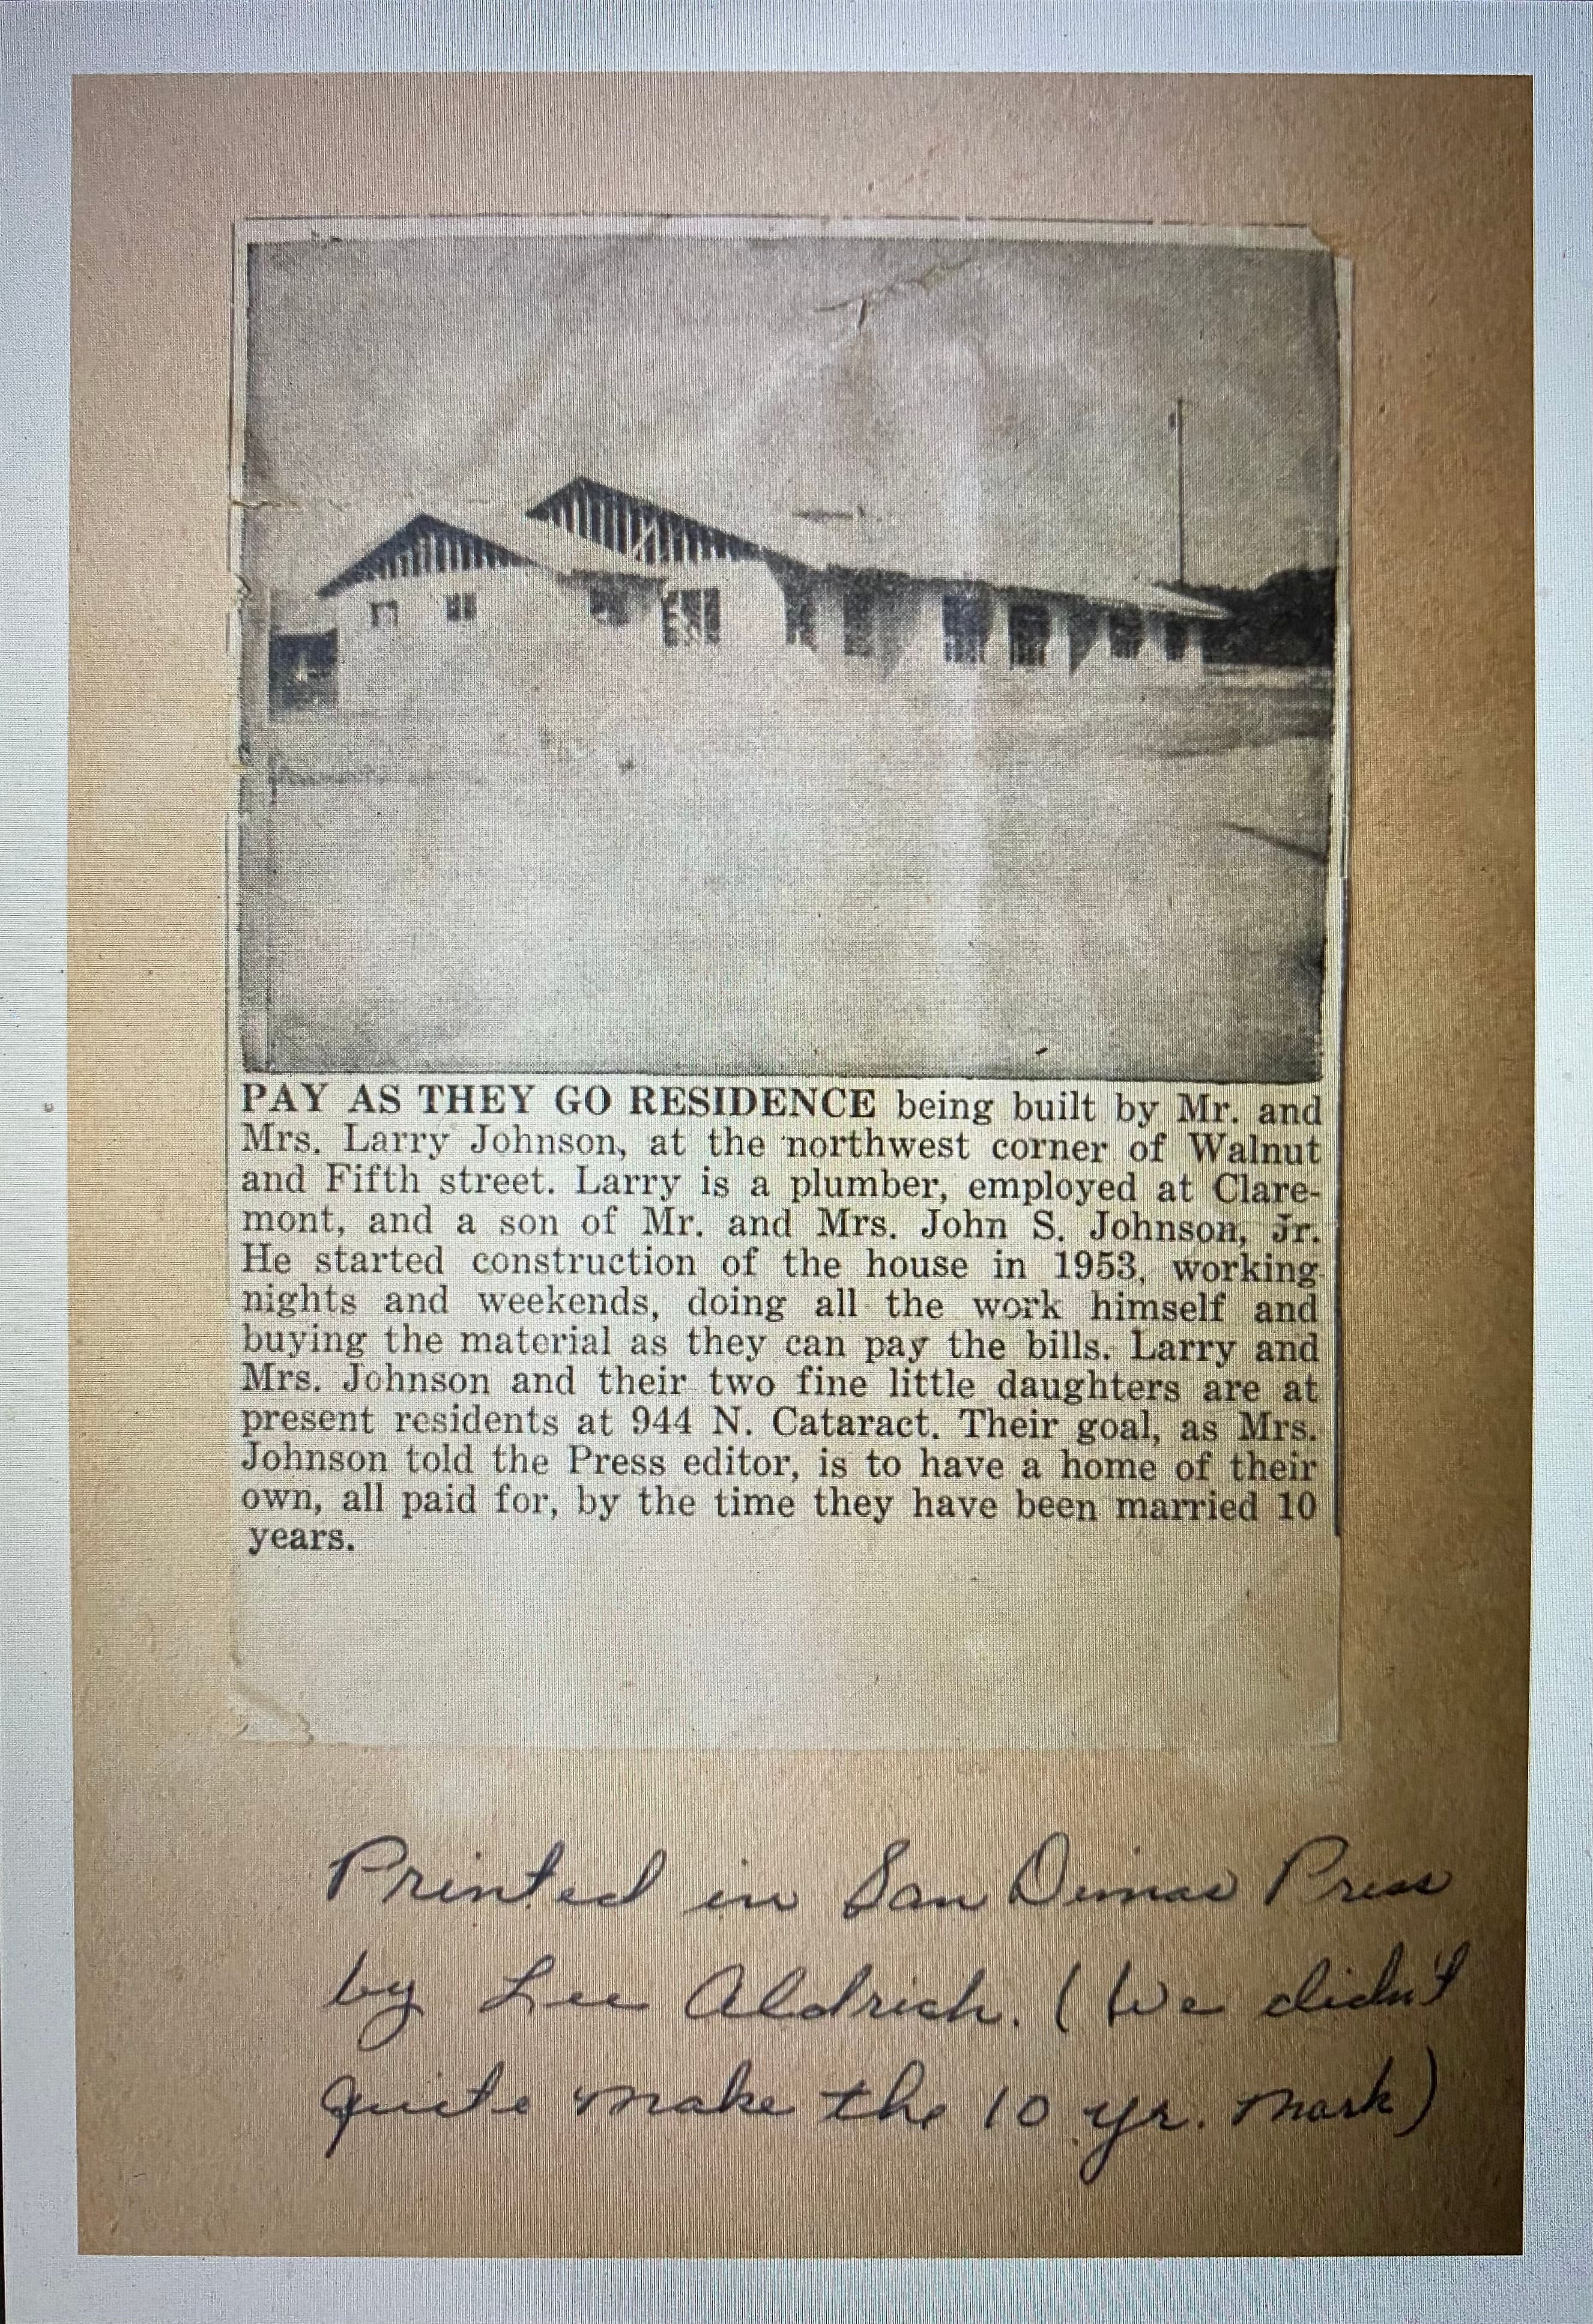 PAY AS THEY GO RESIDENCE being built by Mr. and
Mrs. Larry Johnson, at the northwest corner of Walnut
and Fifth street. Larry is a plumber, employed at Clare-
mont, and a son of Mr. and Mrs. John S. Johnson, Jr.
He started construction of the house in 1953, working
nights and weekends, doing all the work himself and
buying the material as they can pay the bills. Larry and
Mrs. Johnson and their two fine little daughters are at
present residents at 944 N. Cataract. Their goal, as Mrs.
Johnson told the Press editor, is to have a home of their
own, all paid for, by the time they have been married 10
years.
Printed in San Dimas Press
by Lee Aldrich. (We didn't
quite make the 10 yr. mark)